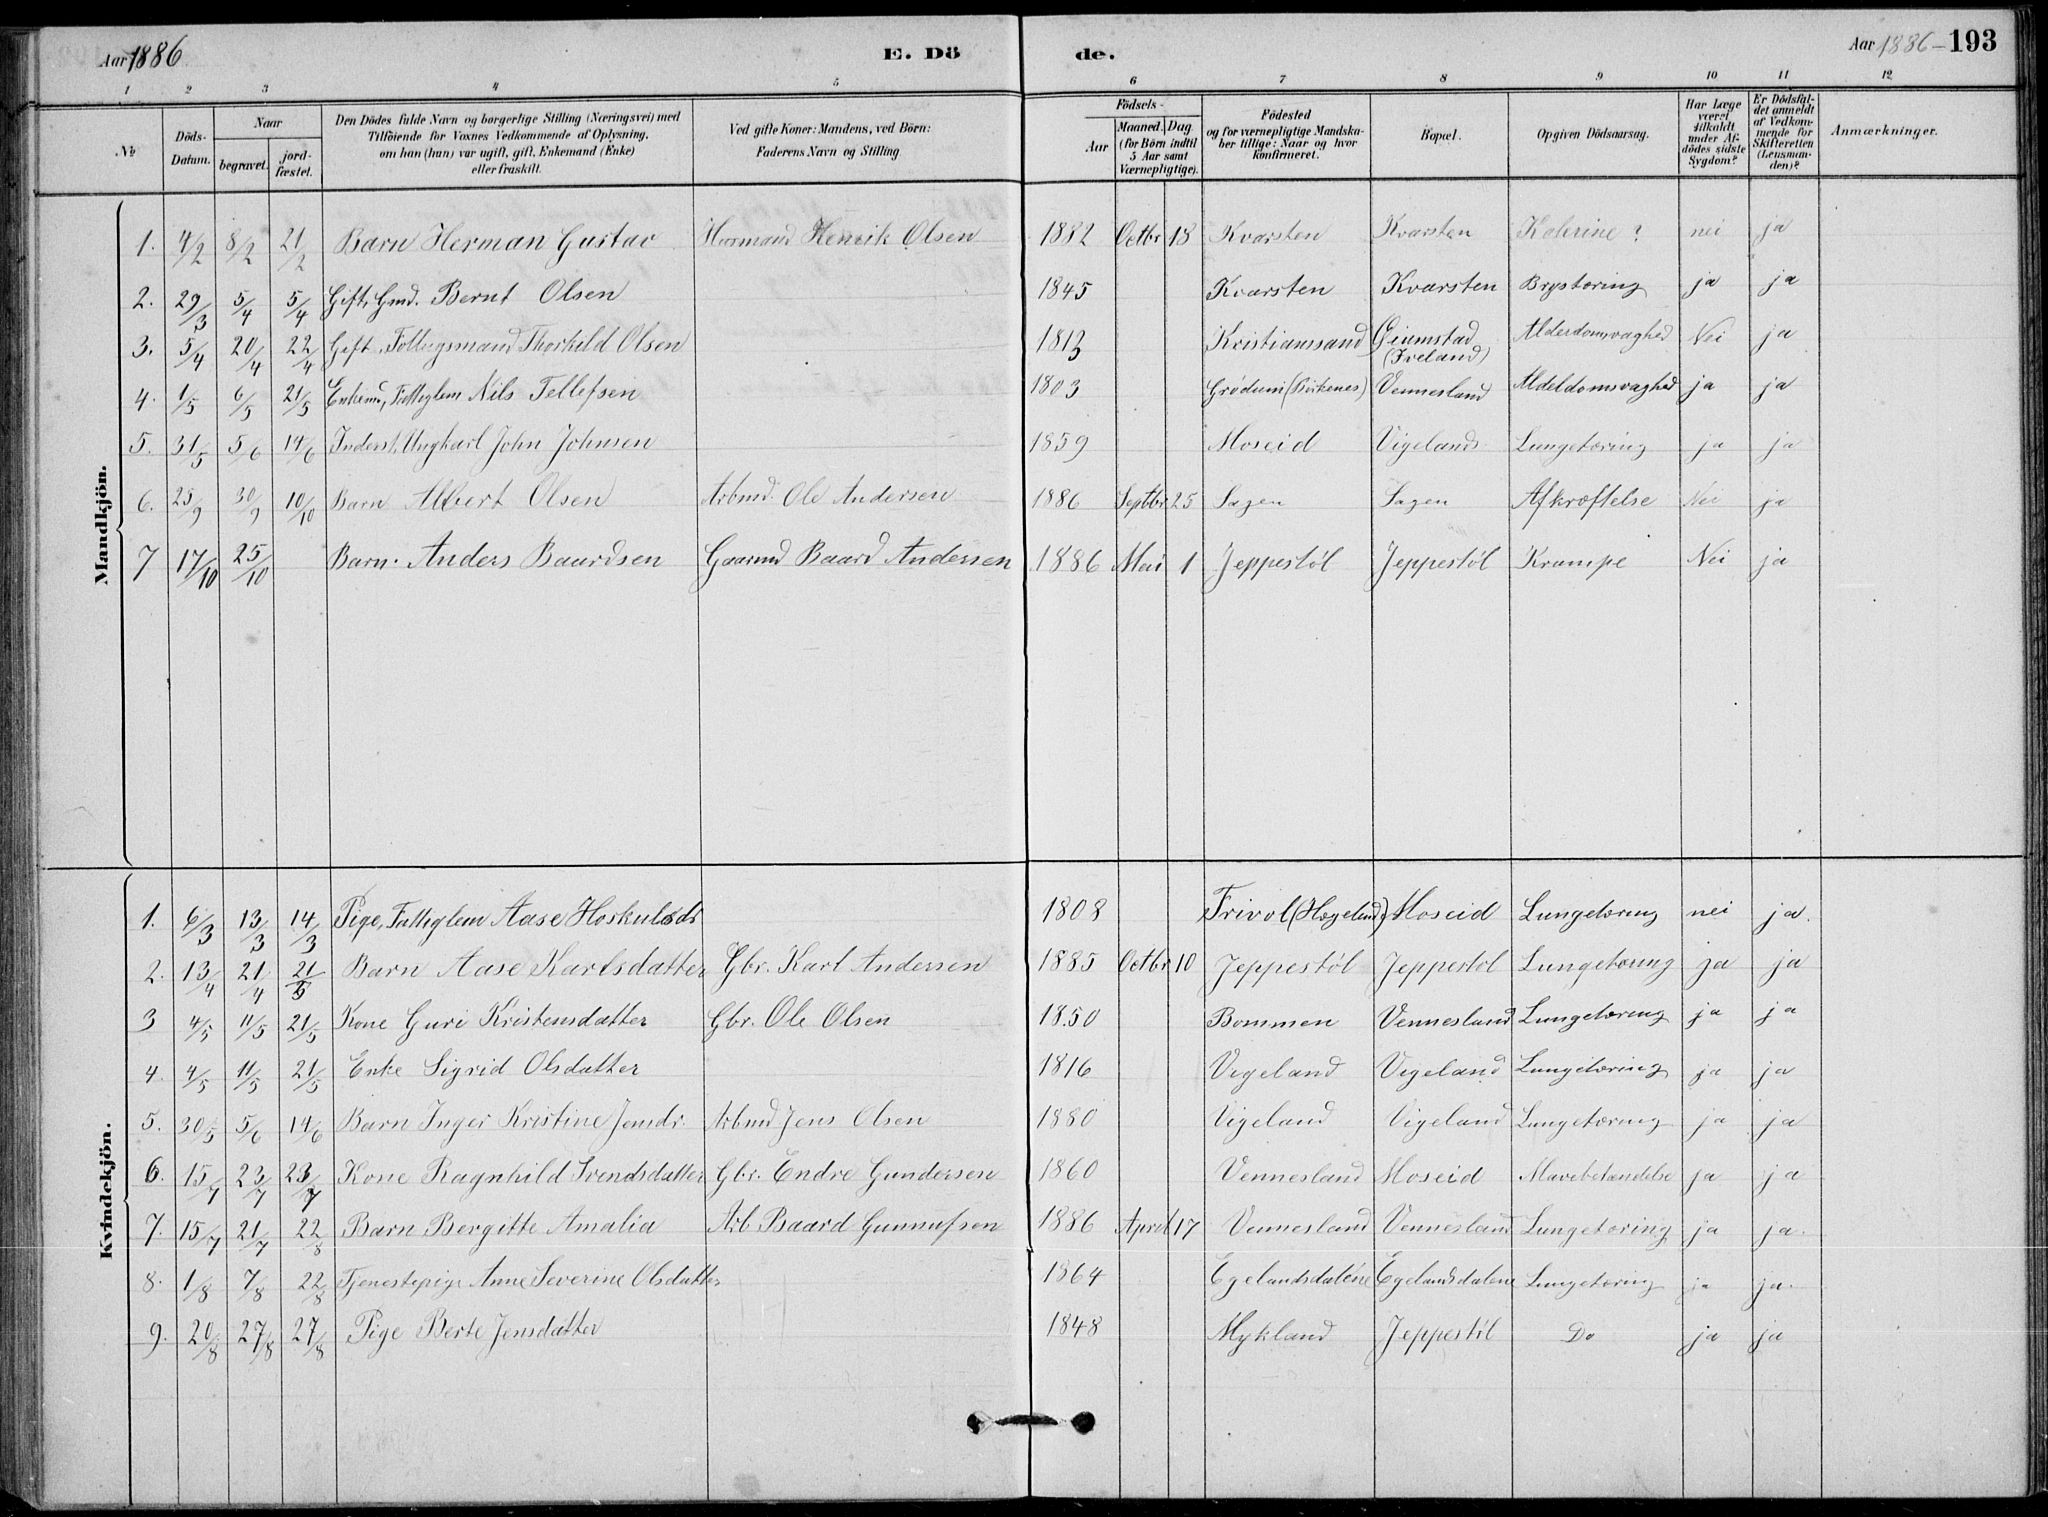 Aar 1886 E. Dö de. Aar 1886 — 193
1 2 3 4 5 6 7 8 9 10 11 12
No
Döds-Datum.
Naar
begravet.
jord-fæstet.
Den Dödes fulde Navn og borgerlige Stilling (Næringsvei) med
Tilföiende for Voxnes Vedkommende af Oplysning,
om han (hun) var ugift, gift, Enkemand (Enke)
eller fraskilt.
Ved gifte Koner: Mandens, ved Börn:
Faderens Navn og Stilling
Födsels-
Aar
Maaned. Dag
(for Börn indtil
5 Aar samt
Værnepligtige).
Födested
og for værnepligtige Mandska-
ber tillige: Naar og hvor
konfirmeret.
Bopæl.
Opgiven Dödsaarsag.
Har Læge
været
tilkaldt
under Af-
dödes sidste
Sygdom?
Er Dödsfal-
det anmeldt
af Vedkom-
mende for
Skifteretten
(Lensman-
den)?
Anmærkninger.
Mandkjön.
1. 4/2 8/2 21/2 Barn Herman Gustav Huusmand Henrik Olsen 1882 Octbr 18 Kvarsten Kvarsten Kolerine? nei ja
2. 29/3 5/4 5/4 Gift, Gmd. Bernt Olsen 1845 Kvarsten Kvarsten Brystæring ja ja
3. 5/4 20/4 22/4 Gift, Thorkild Olsen 1813 Kristianssand Giumstad (Iveland) Alderdomsvaghed Nei ja
4. 1/5 6/5 21/5 Enkemd, Fattiglem Nils Tellefsen 1803 Grødum (Birkenes) Vennesland Aldeldomsvaghed ja ja
5. 31/5 5/6 14/6 Inderst, Ungkarl John Johnsen 1859 Moseid Vigelands Lungetæring ja ja
6. 25/9 30/9 10/10 Barn Albert Olsen Arbmd. Ole Andersen 1886 Septbr 25 Sagen Sagen Afkræftelse Nei ja
7 17/10 25/10 Barn. Anders Baardsen Gaarmd Baard Andersen 1886 Mai 1 Jeppestøl Jeppestøl Krampe Nei ja
Kvindekjön.
1. 6/3 13/3 14/3 Pige, Fattiglem Aase Hoskuldsdr 1808 Trivol (Hægeland) Moseid Lungetæring nei ja.
2. 13/4 21/4 21/5 Barn Aase Karlsdatter Gbr. Karl Andersen 1885 Octbr 10 Jeppestøl Jeppestøl Lungetæring ja ja
3 4/5 11/5 21/5 Kone Guri Kristensdatter Gbr. Ole Olsen 1850 Bommen Vennesland Lungetæring ja ja
4. 4/5 11/5 21/5 Enke Sigrid Olsdatter 1816 Vigeland Vigeland Lungetæring ja ja
5. 30/5 5/6 14/6 Barn Inger Kristine Jensdr. Arbmd Jens Olsen 1880 Vigeland Vigeland Lungetæring ja ja
6. 15/7 23/7 23/7 Kone Ragnhild Svendsdatter Gbr. Endre Gundersen 1860 Vennesland Moseid Mavebetændelse ja ja
7. 15/7 21/7 22/8 Barn Bergitte Amalia Arb. Baard Gunnufsen 1886 April 17 Vennesland Vennesland Lungetæring ja ja.
8. 1/8 7/8 22/8 Tjenestepige Anne Severine Olsdatter 1864 Egelandsdalene Egelandsdalene Lungetæring ja ja.
9. 20/8 27/8 27/8 Pige Berte Jensdatter 1848 Mykland Jeppestøl Do ja ja